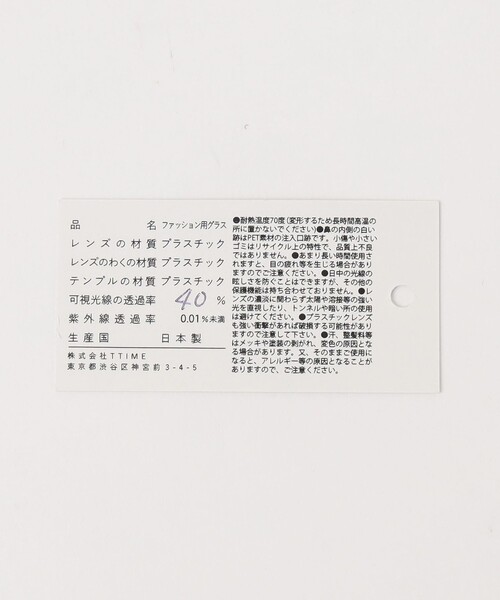 品 名 ファッション用グラス
レンズの材質 プラスチック
レンズのわくの材質 プラスチック
テンプルの材質 プラスチック
可視光線の透過率 40 %
紫外線透過率 0.01%未満
生産国 日本製
株式会社TTIME
東京都渋谷区神宮前3-4-5
●耐熱温度70度(変形するため長時間高温の
所に置かないでください)●鼻の内側の白い
跡はPET素材の注入口跡です。小傷や小さい
ゴミはリサイクル上の特性で、品質上不良
ではありません。●あまり長い時間使用さ
れますと、目の疲れ等を生じる場合があり
ますのでご注意ください。●日中の光線の
眩しさを防ぐことはできますが、その他の
保護機能は持ち合わせておりません。●レ
ンズの濃淡に関わらず太陽や溶接等の強い
光を直視したり、トンネルや暗い所の使用
は避けてください。●プラスチックレンズ
も強い衝撃があれば破損する可能性があり
ますので注意して下さい。●汗、整髪料等
はメッキや塗装の剥がれ、変色の原因とな
る場合があります。又、そのままご使用に
なると、アレルギー等の原因となることが
ありますので、ご注意ください。